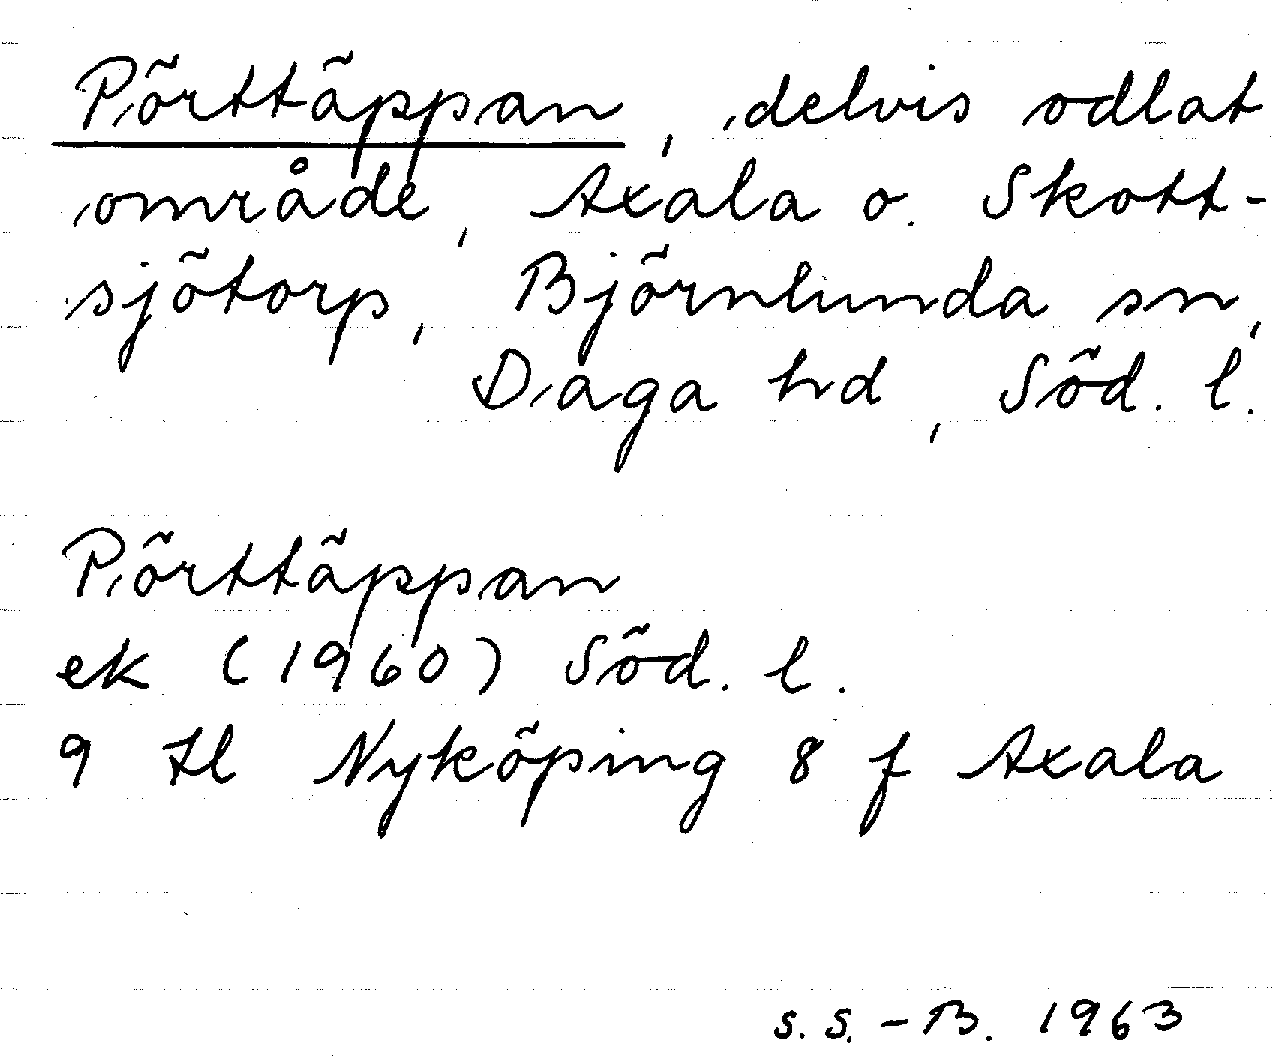 Pörttäppan, delvis odlat
område, Axala o. Skott-
sjötorp, Björnlunda sn,
Daga hd, Söd. l.
Pörttäppan
ek (1960) Söd. l.
9 H l Nyköping 8 f Axala
S. S. - B. 1963